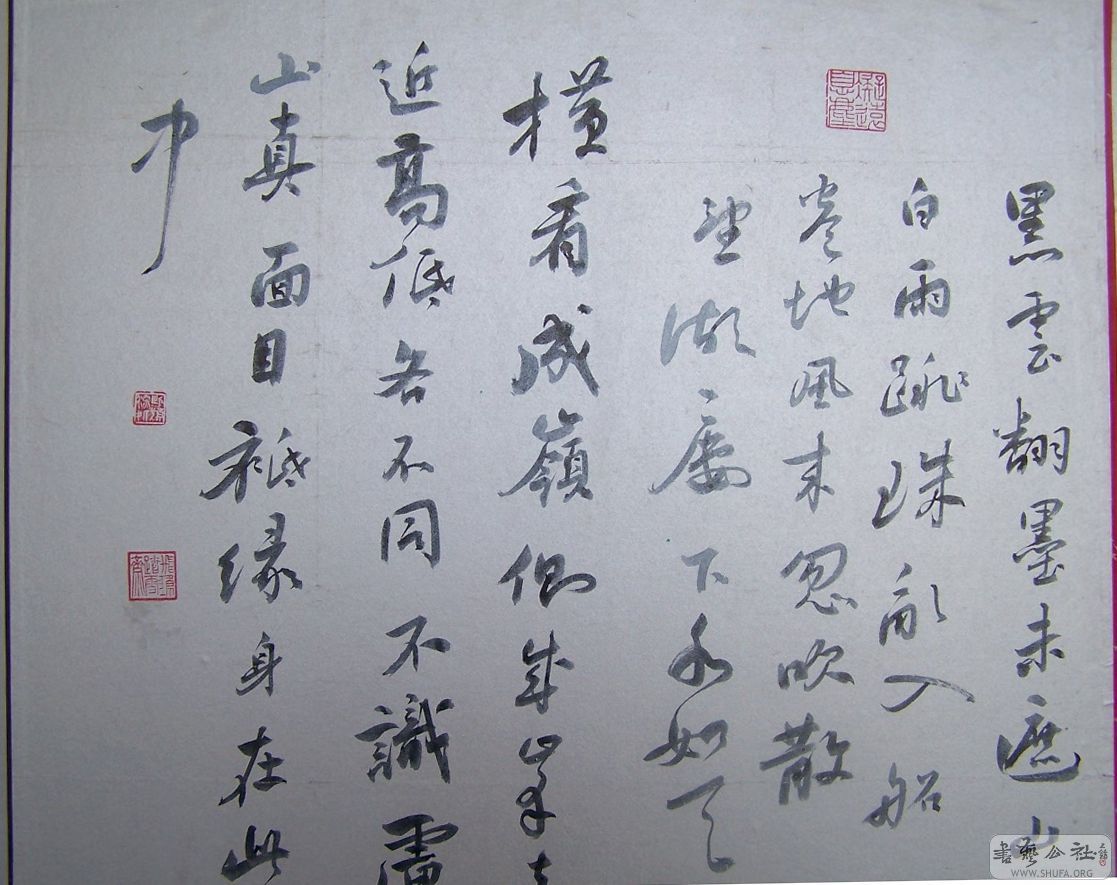 黑雲翻墨未遮山
白雨跳珠亂入船
卷地風来忽吹散
望湖屢下水如天
橫看成嶺側成峯
近高低各不同不識
山真面目衹緣身在此
中
書藝公社
WWW.SHUFA.ORG